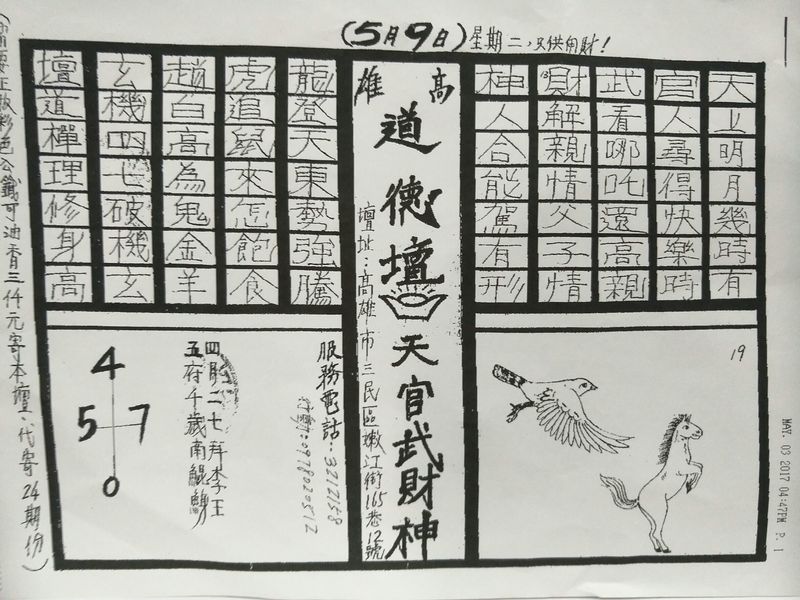 (5月9日)星期二,只供角財!
天上明月幾時有
官人尋得快樂時
武看哪吒還高親
財解親情父子情
神人合能駕有形
高雄
道德壇
天官武財神
壇址:高雄市三民區嫩江街165巷12號
龍登天東勢強騰
虎追鼠來怎飽食
趙白高為鬼金羊
玄機四七破機玄
壇道禪理修身高
19
服務電話:3212158
四月二七拜李王
五府千歲南鯤鯓
4
5 7
0
三仟元寄本壇、代寄24期份)
MAY. 03 2017 04:47PM P. 1